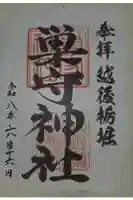 奉拝 越後栃堀
巣守神社
令和八年六月十六日